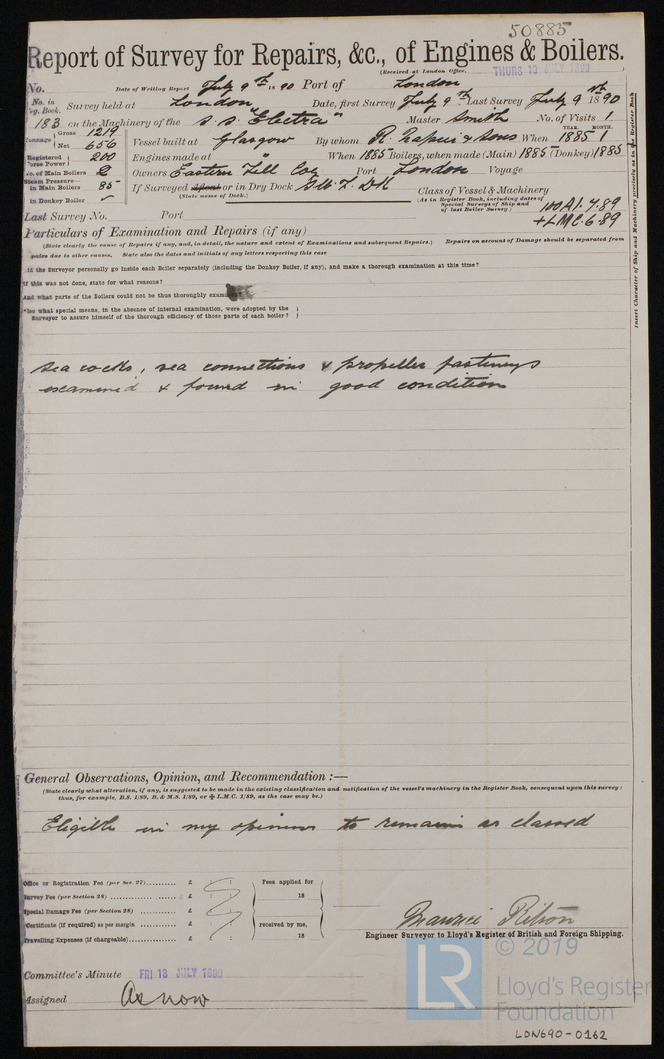 50885
Report of Survey for Repairs, &c., of Engines & Boilers.
(Received at London Office, THURS 10 JULY 1890
No. Date of Writing Report July 9th 1890 Port of London
No. in Reg. Book. Survey held at London Date, first Survey July 9th Last Survey July 9th 1890
183 on the Machinery of the S.S. "Electra" Master Smith No. of Visits 1
Tonnage Gross 1219 Net 656 Vessel built at Glasgow By whom R. Napier & Sons When YEAR. 1885 MONTH. 1
Registered Horse Power 200 Engines made at " When 1885 Boilers, when made (Main) 1885 (Donkey) 1885
No. of Main Boilers 2 Owners Eastern Tel Coy Port London Voyage
Steam Pressure in Main Boilers 85 If Surveyed afloat or in Dry Dock
in Donkey Boiler (State name of Dock.)
Class of Vessel & Machinery
(As in Register Book, including dates of Special Surveys of Ship and of last Boiler Survey)
100A1.7.89
+LMC.6.89
Last Survey No. Port
Particulars of Examination and Repairs (if any)
(State clearly the cause of Repairs if any, and, in detail, the nature and extent of Examinations and subsequent Repairs.) Repairs on account of Damage should be separated from
pairs due to other causes. State also the dates and initials of any letters respecting this case
Did the Surveyor personally go inside each Boiler separately (including the Donkey Boiler, if any), and make a thorough examination at this time?
If this was not done, state for what reasons?
And what parts of the Boilers could not be thus thoroughly examined?
Also what special means, in the absence of internal examination, were adopted by the
Surveyor to assure himself of the thorough efficiency of those parts of each boiler?
Sea cocks, sea connections & propeller fastenings
examined & found in good condition
General Observations, Opinion, and Recommendation :—
(State clearly what alteration, if any, is suggested to be made in the existing classification and notification of the vessel's machinery in the Register Book, consequent upon this survey:
thus, for example, B.S. 1/89, B. & M.S. 1/89, or ✠ L.M.C. 1/89, as the case may be.)
Eligible in my opinion to remain as classed
Office or Registration Fee (per Sec. 27).......... £ : : Fees applied for
Survey Fee (per Section 28) .............. £ : : 18
Special Damage Fee (per Section 28) ........ £ : :
Certificate (if required) as per margin ........ £ : : received by me,
Travelling Expenses (if chargeable)............ £ : : 18
Engineer Surveyor to Lloyd's Register of British and Foreign Shipping.
Committee's Minute FRI 18 JULY 1890
Assigned As now
© 2019
LR Lloyd's Register
Foundation
LDN690-0162
Insert Character of Ship and Machinery precisely as in the Register Book